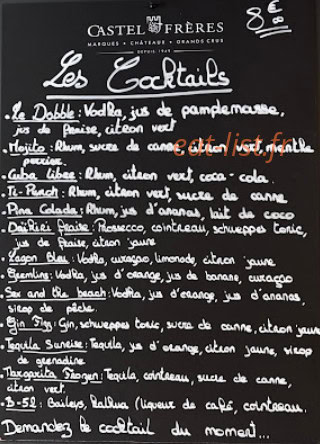 CASTEL FRÈRES
MARQUES • CHÂTEAUX • GRANDS CRUS
DEPUIS 1949
8€
Les Cocktails
• Le Dobble : Vodka, jus de pamplemousse,
jus de fraise, citron vert
• Mojito : Rhum, sucre de canne, citron vert, menthe
perrier.
eat-list.fr
• Cuba libre : Rhum, citron vert, coca-cola.
• Ti-Punch : Rhum, citron vert, sucre de canne
• Pina Colada : Rhum, jus d'ananas, lait de coco
• Daïkiri fraise : Prosecco, cointreau, schweppes tonic,
jus de fraise, citron jaune
• Lagon Bleu : Vodka, curaçao, limonade, citron jaune
• Gremlins : Vodka, jus d'orange, jus de banane, curaçao
• Sex and the beach : Vodka, jus d'orange, jus d'ananas,
sirop de pêche.
• Gin Fizz : Gin, schweppes tonic, sucre de canne, citron jaune
• Tequila Sunrise : Tequila, jus d'orange, citron jaune, sirop
de grenadine.
• Margarita Frozen : Tequila, cointreau, sucre de canne,
citron vert.
• B-52 : Baileys, Kalhua (liqueur de café, cointreau.
Demandez le cocktail du moment...